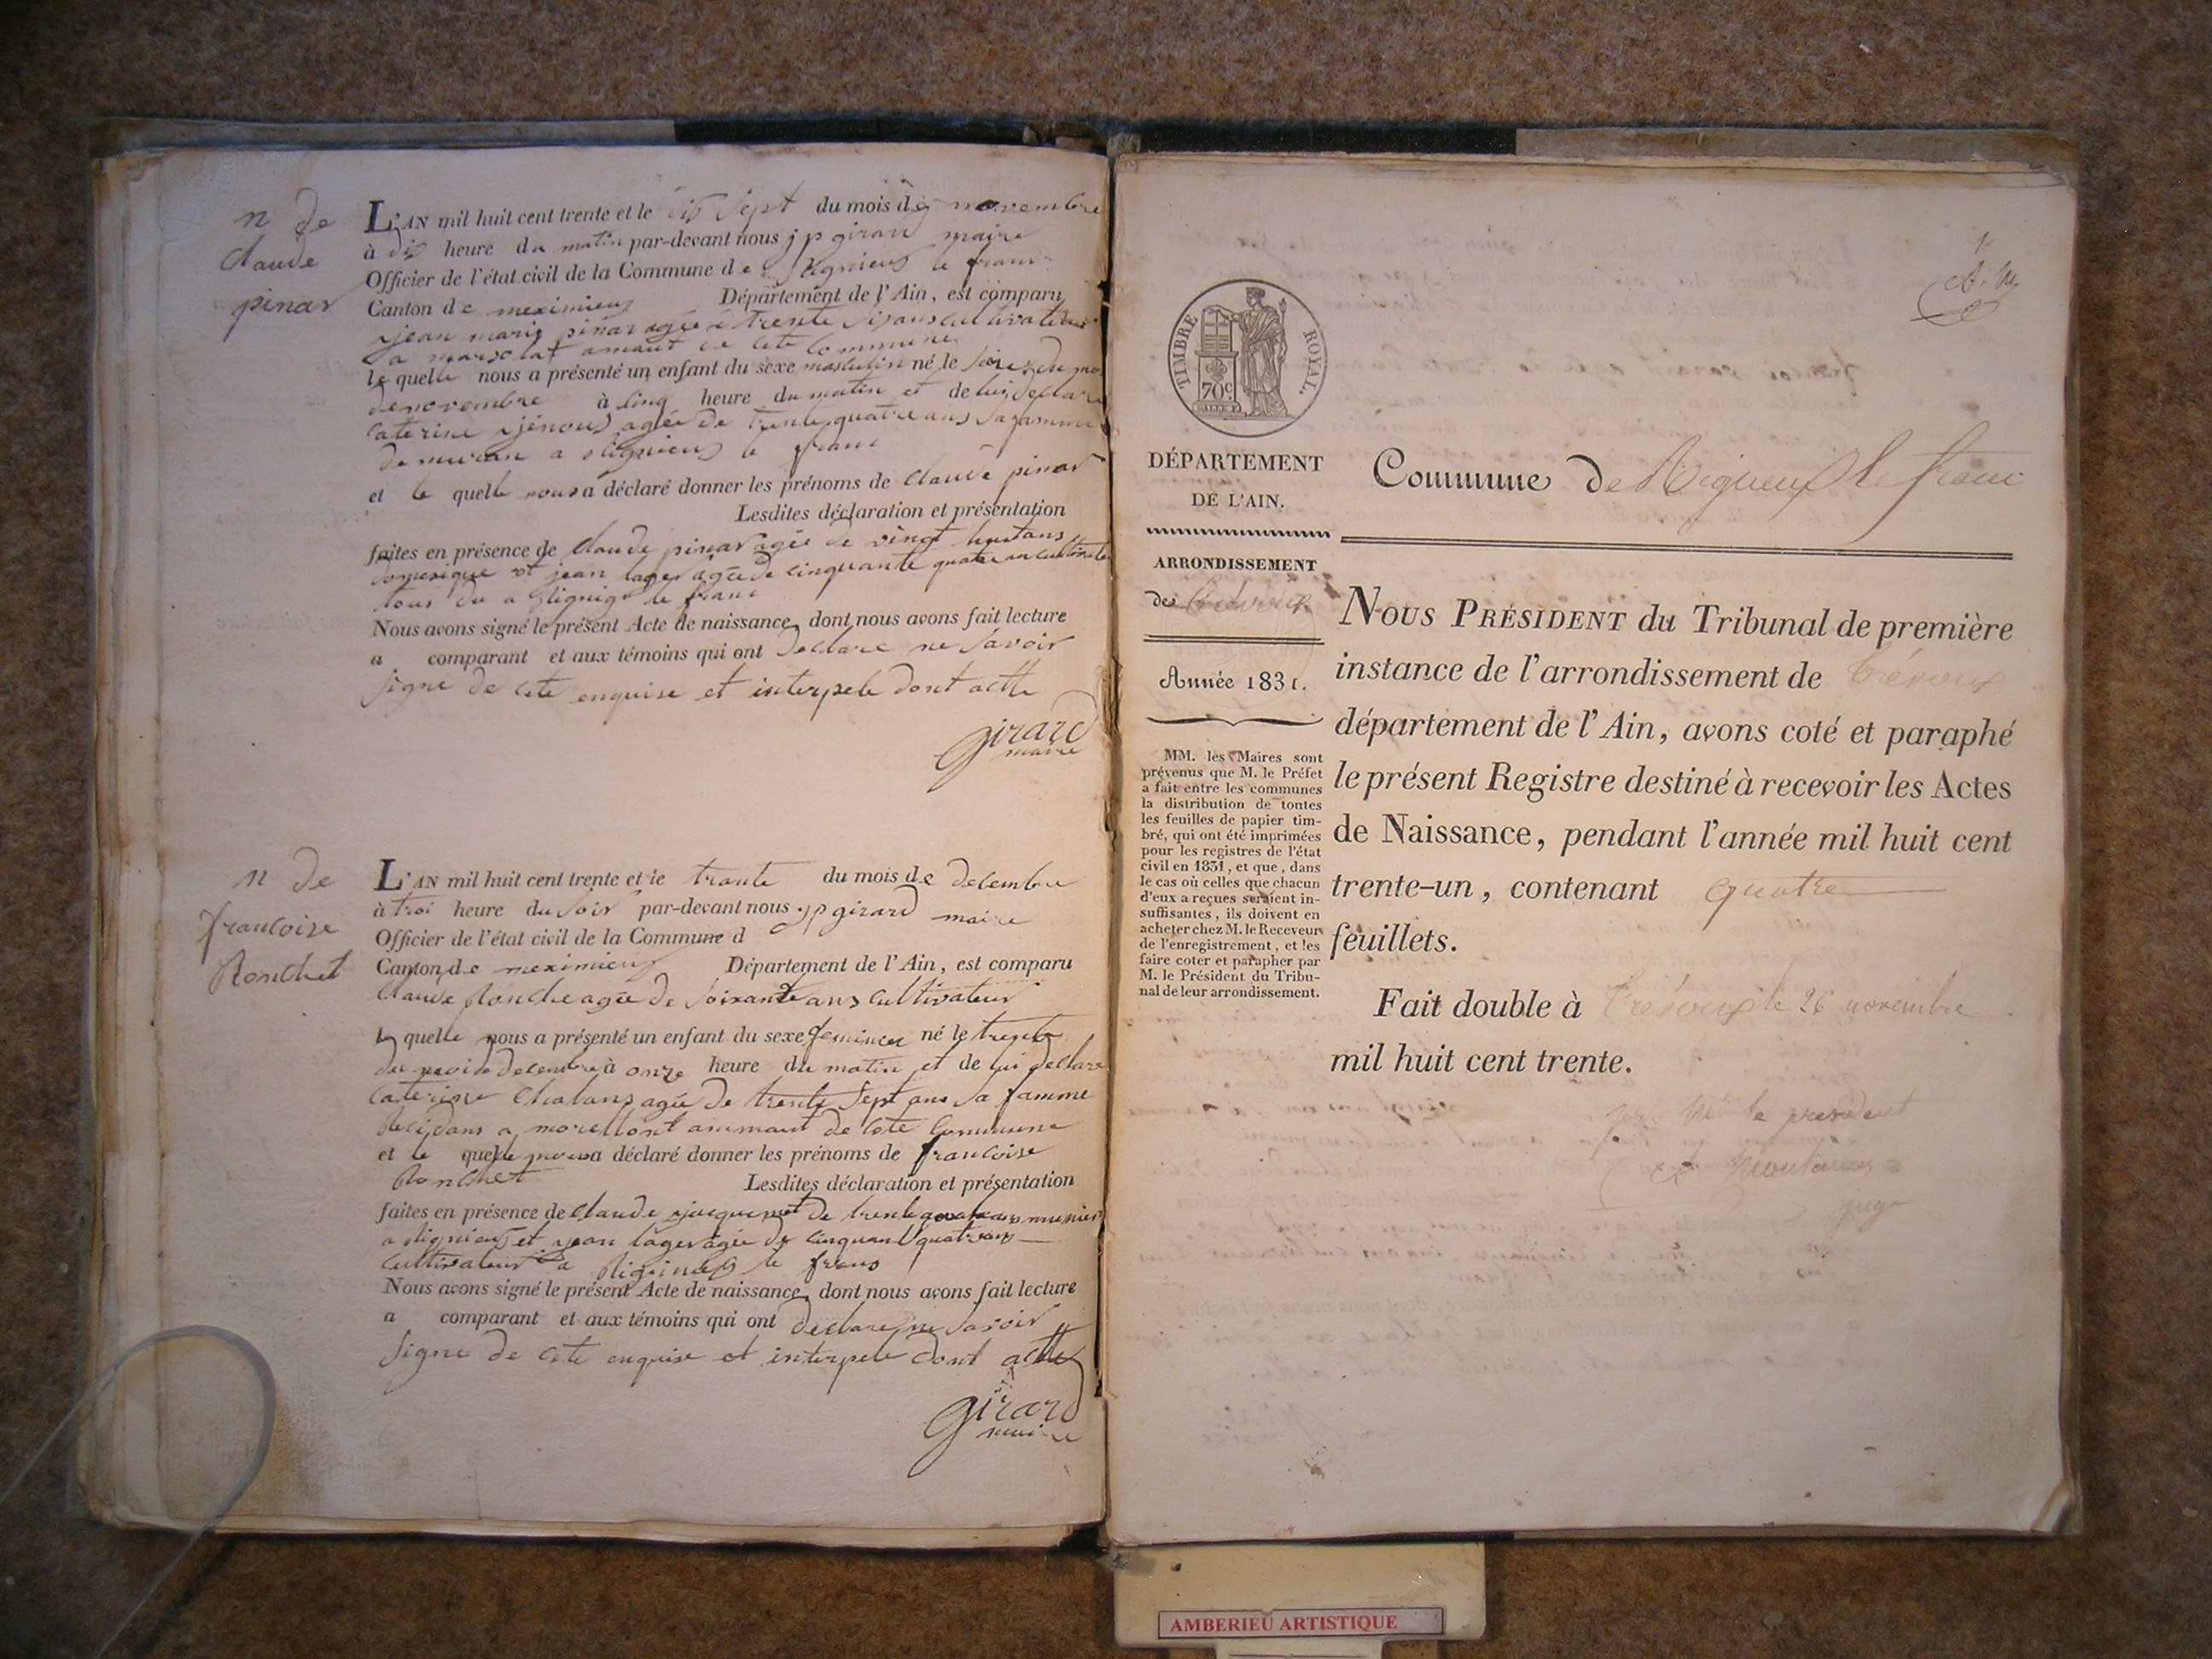 n de
claude
pinar
L'AN mil huit cent trente et le dix sept du mois de novembre
à dix heure du matin par-devant nous j p girard maire
Officier de l'état civil de la Commune de Rignieux le franc
Canton de meximieux Département de l'Ain, est comparu
jean marie pinar agée de trente six ans cultivateur
a marsolat amaut de cete commune
le quelle nous a présenté un enfant du sexe masculin né le seize du moi
de novembre à cinq heure du matin et de lui declare
caterine agée de trente quatre ans sa famme
a Rignieux le franc
et le quelle nous a déclaré donner les prénoms de claude pinar
Lesdites déclaration et présentation
faites en présence de claude pinar agée de vingt huit ans
domesique et jean lager agée de cinquante quatre an cultivateur
tous du a le franc
Nous avons signé le présent Acte de naissance, dont nous avons fait lecture
a comparant et aux témoins qui ont declare ne savoir
signe de cete enquise et interpele dont actte
girard
maire
n de
francoise
Ronchet
L'AN mil huit cent trente et le trante du mois de decembre
à troi heure du soir par-devant nous j p girard maire
Officier de l'état civil de la Commune d
Canton de meximieux Département de l'Ain, est comparu
claude Ronche agée de soixante ans cultivateur
le quelle nous a présenté un enfant du sexe feminin né le trente
du moi de decembre à onze heure du matin et de lui declare
caterine chalans agée de trente sept ans sa famme
Residans a morellont de cete commune
et le quelle nous a déclaré donner les prénoms de francoise
Ronchet
Lesdites déclaration et présentation
faites en présence de claude de trente quatre ans munier
a Rignieux et jean lager agée de cinquante quatre ans
cultivateur a Rignieux le franc
Nous avons signé le présent Acte de naissance, dont nous avons fait lecture
a comparant et aux témoins qui ont declare ne savoir
signe de cete enquise et interpele dont actte
girard
maire
TIMBRE ROYAL.
70c
DÉPARTEMENT
DE L'AIN.
ARRONDISSEMENT
de Trévoux
Année 1831.
MM. les Maires sont
prévenus que M. le Préfet
a fait entre les communes
la distribution de toutes
les feuilles de papier tim-
bré, qui ont été imprimées
pour les registres de l'état
civil en 1831, et que, dans
le cas où celles que chacun
d'eux a reçues seraient in-
suffisantes, ils doivent en
acheter chez M. le Receveur
de l'enregistrement, et les
faire coter et parapher par
M. le Président du Tribu-
nal de leur arrondissement.
Commune de Rigneux le franc
NOUS PRÉSIDENT du Tribunal de première
instance de l'arrondissement de Trévoux
département de l'Ain, avons coté et paraphé
le présent Registre destiné à recevoir les Actes
de Naissance, pendant l'année mil huit cent
trente-un, contenant quatre
feuillets.
Fait double à Trévoux le 26 novembre
mil huit cent trente.
pr Mr le president
juge
AMBERIEU ARTISTIQUE